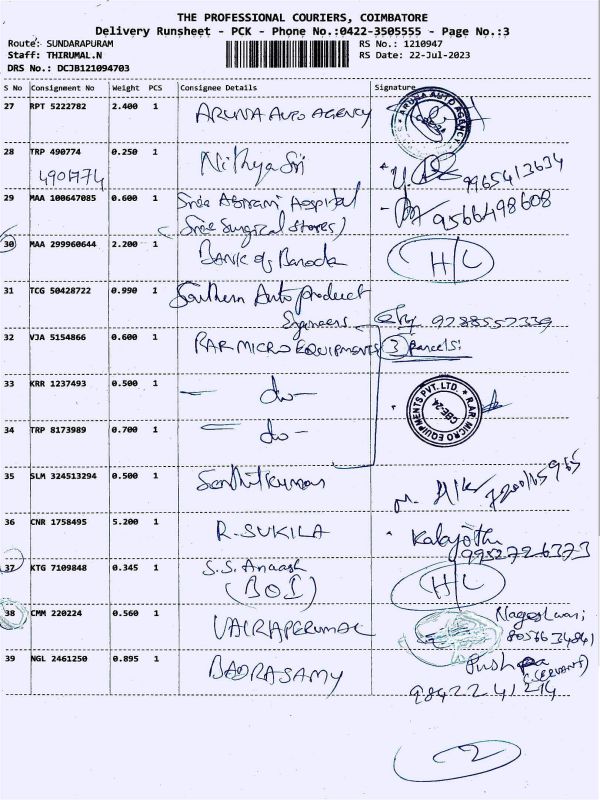 THE PROFESSIONAL COURIERS, COIMBATORE
Delivery Runsheet - PCK - Phone No.:0422-3505555 - Page No.:3
Route: SUNDARAPURAM RS No.: 1210947
Staff: THIRUMAL.N RS Date: 22-Jul-2023
DRS No.: DCJB121094703
S No Consignment No Weight PCS Consignee Details Signature
27 RPT 5222782 2.400 1 ARUNA AUTO AGENCY ARUNA AUTO AGENCY
28 TRP 490774 0.250 1 Nithya Sri 9965413634
4901774
29 MAA 100647085 0.600 1 Sree Abirami Hospital 9566498608
(Sree Surgical Stores)
30 MAA 299960644 2.200 1 Bank of Baroda H/L
31 TCG 50428722 0.990 1 Southern Auto product
Engineers
32 VJA 5154866 0.600 1 RAR MICRO EQUIPMENTS 3 parcels:
33 KRR 1237493 0.500 1 - do - R.AR MICRO EQUIPMENTS PVT. LTD. CBE-24
34 TRP 8173989 0.700 1 - do -
35 SLM 324513294 0.500 1 Senthilkumar
36 CNR 1758495 5.200 1 R. SUKILA Kalajothi
9952726373
37 KTG 7109848 0.345 1 S.S. Anaash H/L
(BOI)
38 CMM 220224 0.560 1 VAIRAPERUMAL Nageshwari
8056634841
39 NGL 2461250 0.895 1 BADRASAMY Pushpa
(SERVANT)
9842241214
2